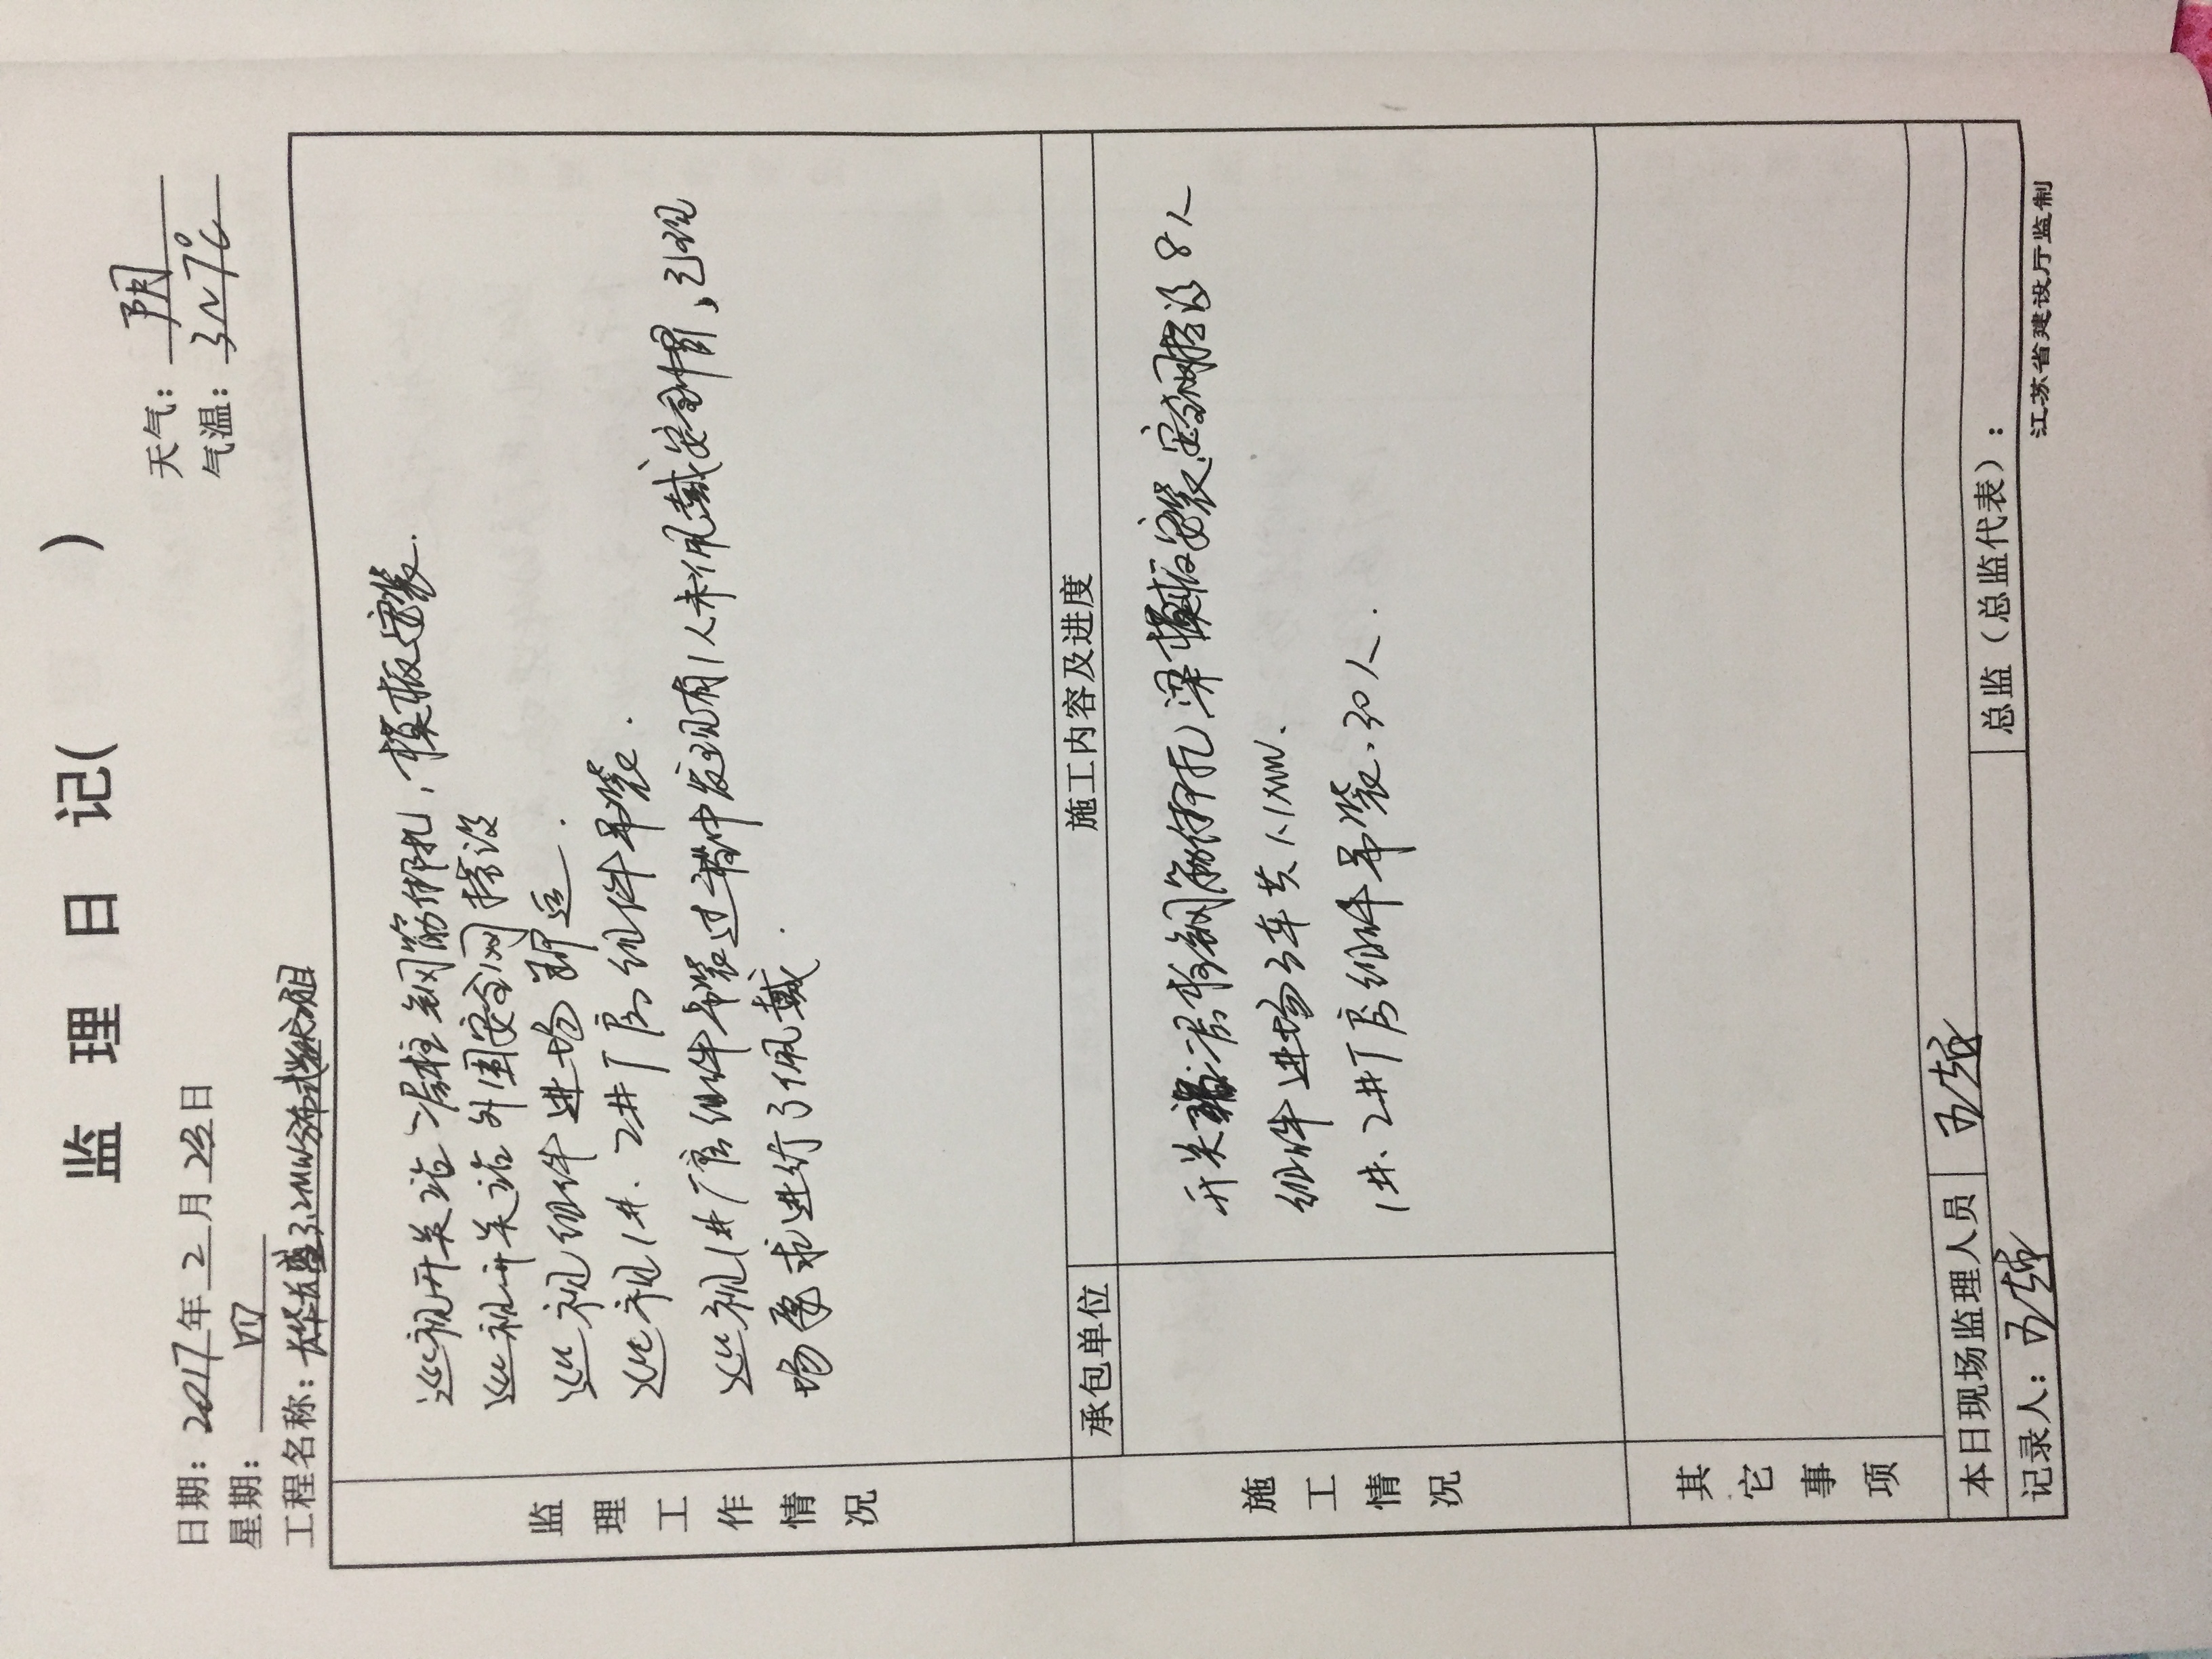 监 理 日 记( )
日期：2017年2月23日 天气：阴
星期：四 气温：3~7℃
工程名称：3.2MW分布式
巡视开关站2层柱钢筋绑扎，模板安装.
巡视开关站外围安全网搭设
巡视组件进场卸运.
巡视1#、2#厂房组件吊装.
巡视1#厂房组件吊装过程中发现有1人未佩戴安全帽，已现
场要求进行了佩戴.
监理工作情况
承包单位 施工内容及进度
开关站 钢筋绑扎 梁模板安装 安全网搭设8人
组件进场3车共
1#、2#厂房组件吊装.30人.
施工情况
其它事项
本日现场监理人员
记录人： 总监（总监代表）：
江苏省建设厅监制